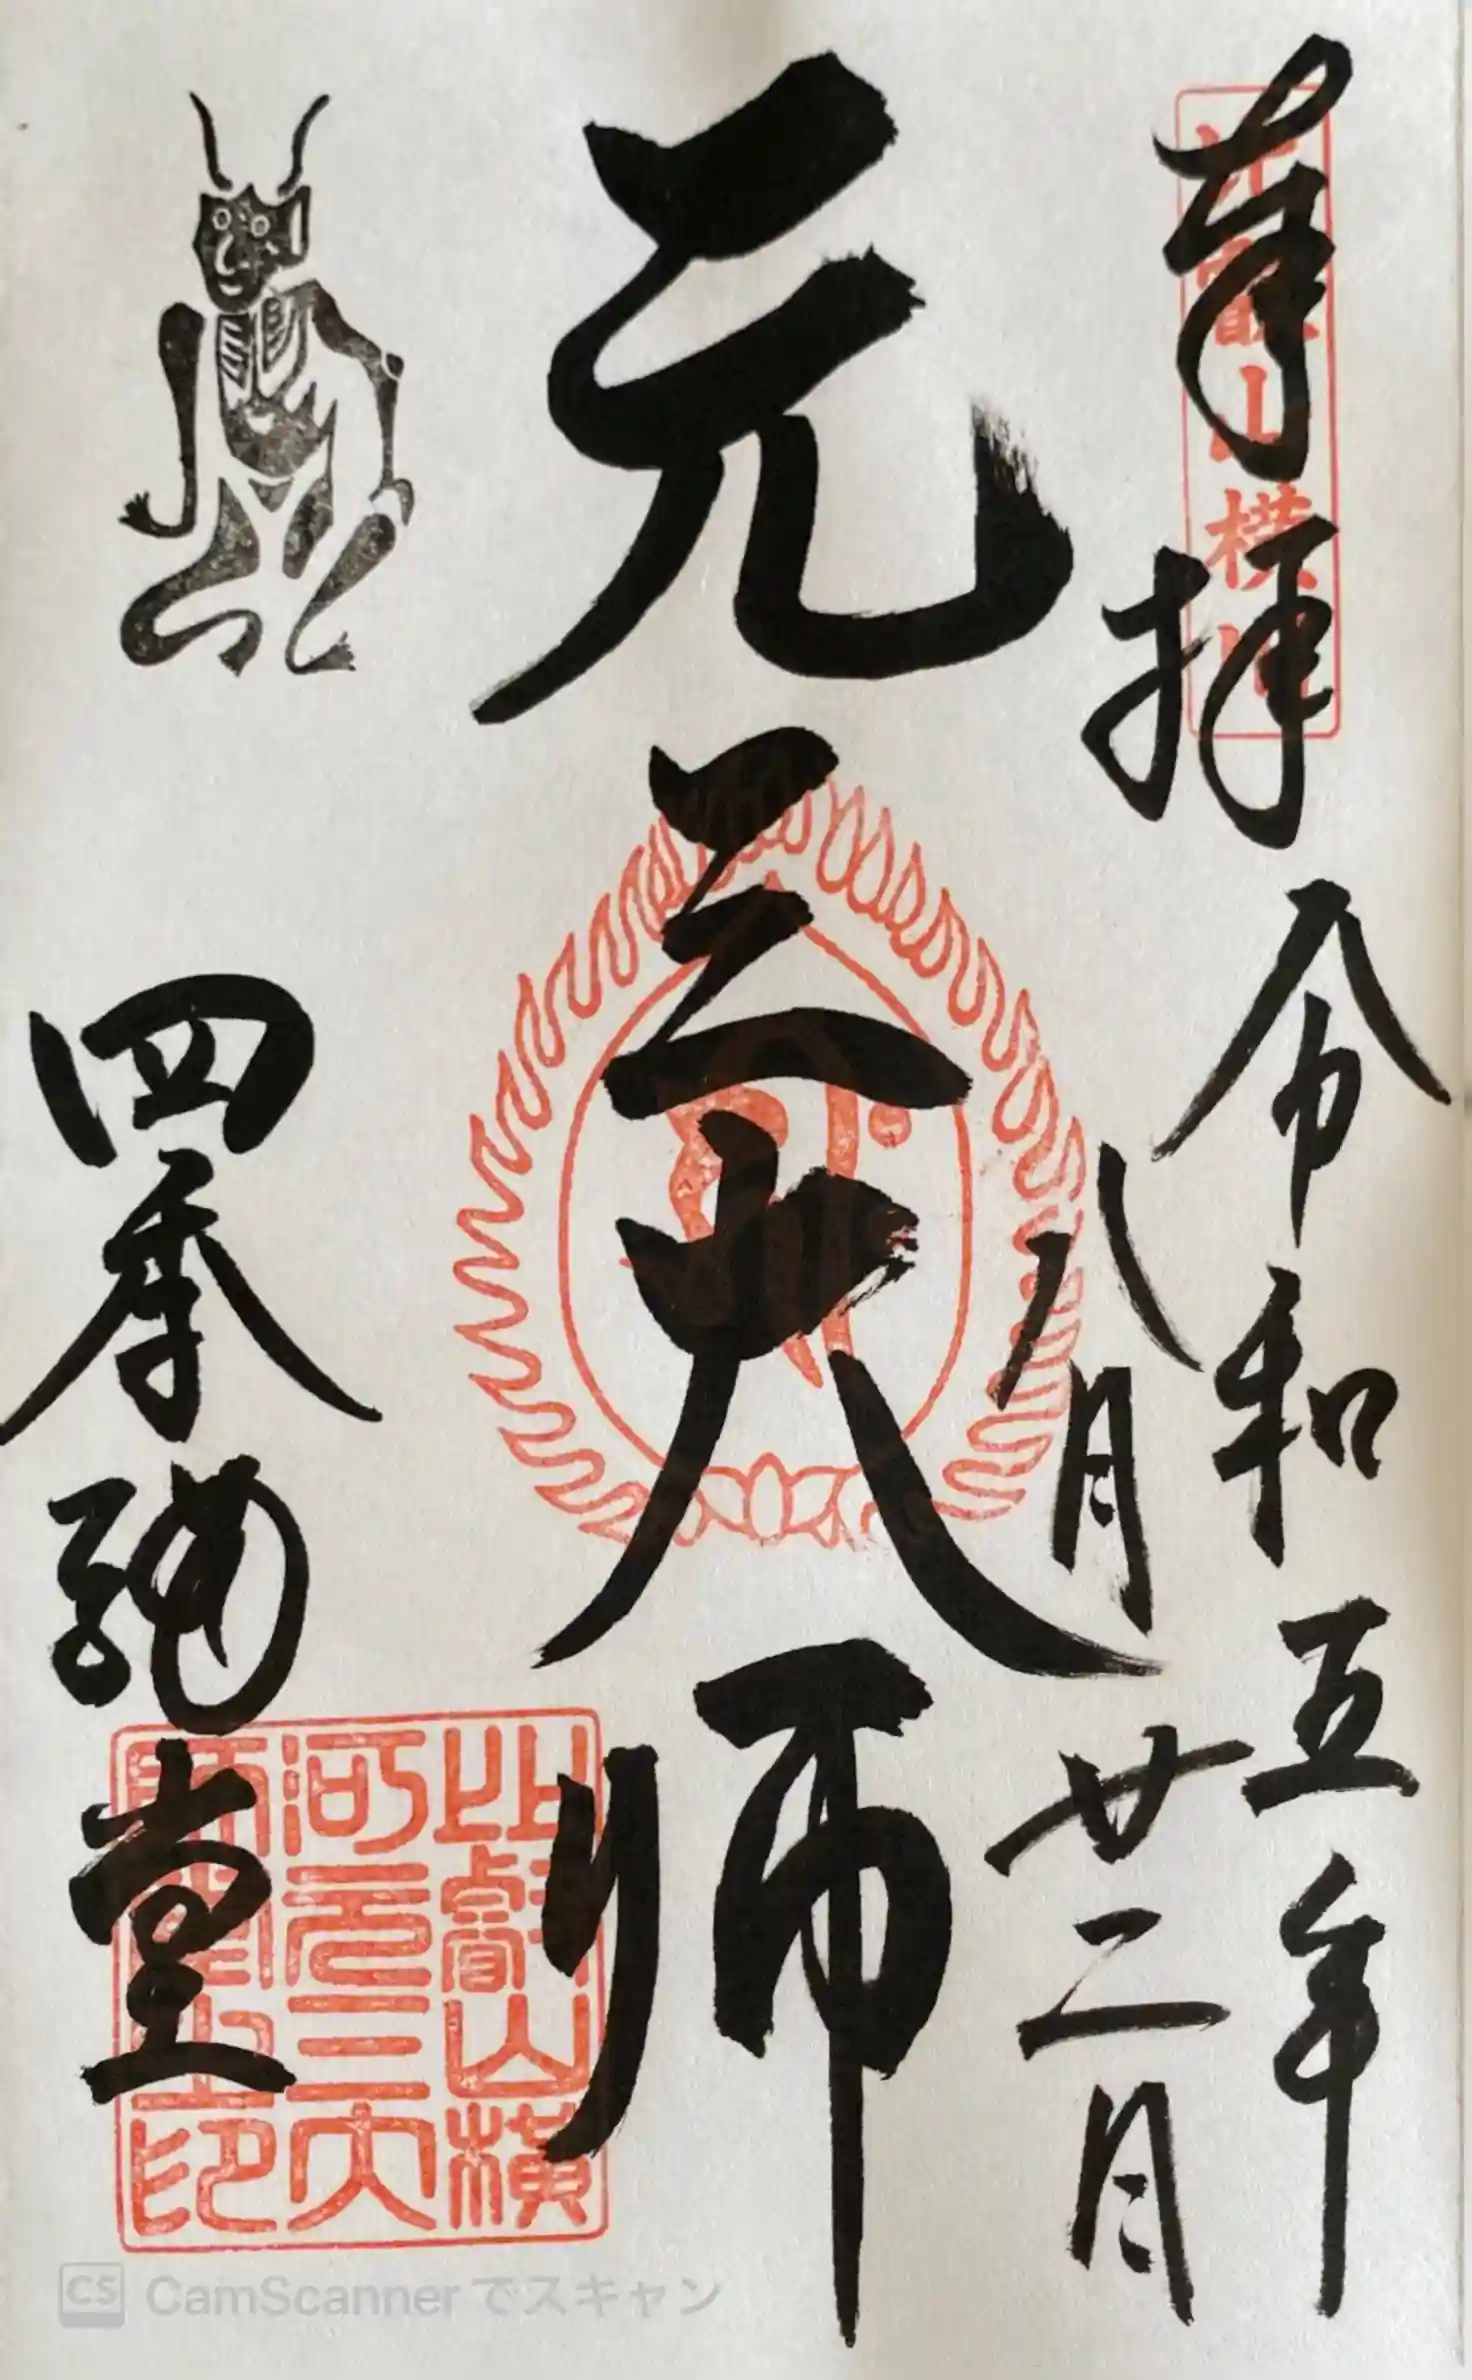 奉拝
令和五年
八月廿二日
比叡山横川
元三大師
四季講堂
比叡山横
河元三大
師堂之印
CS CamScanner でスキャン